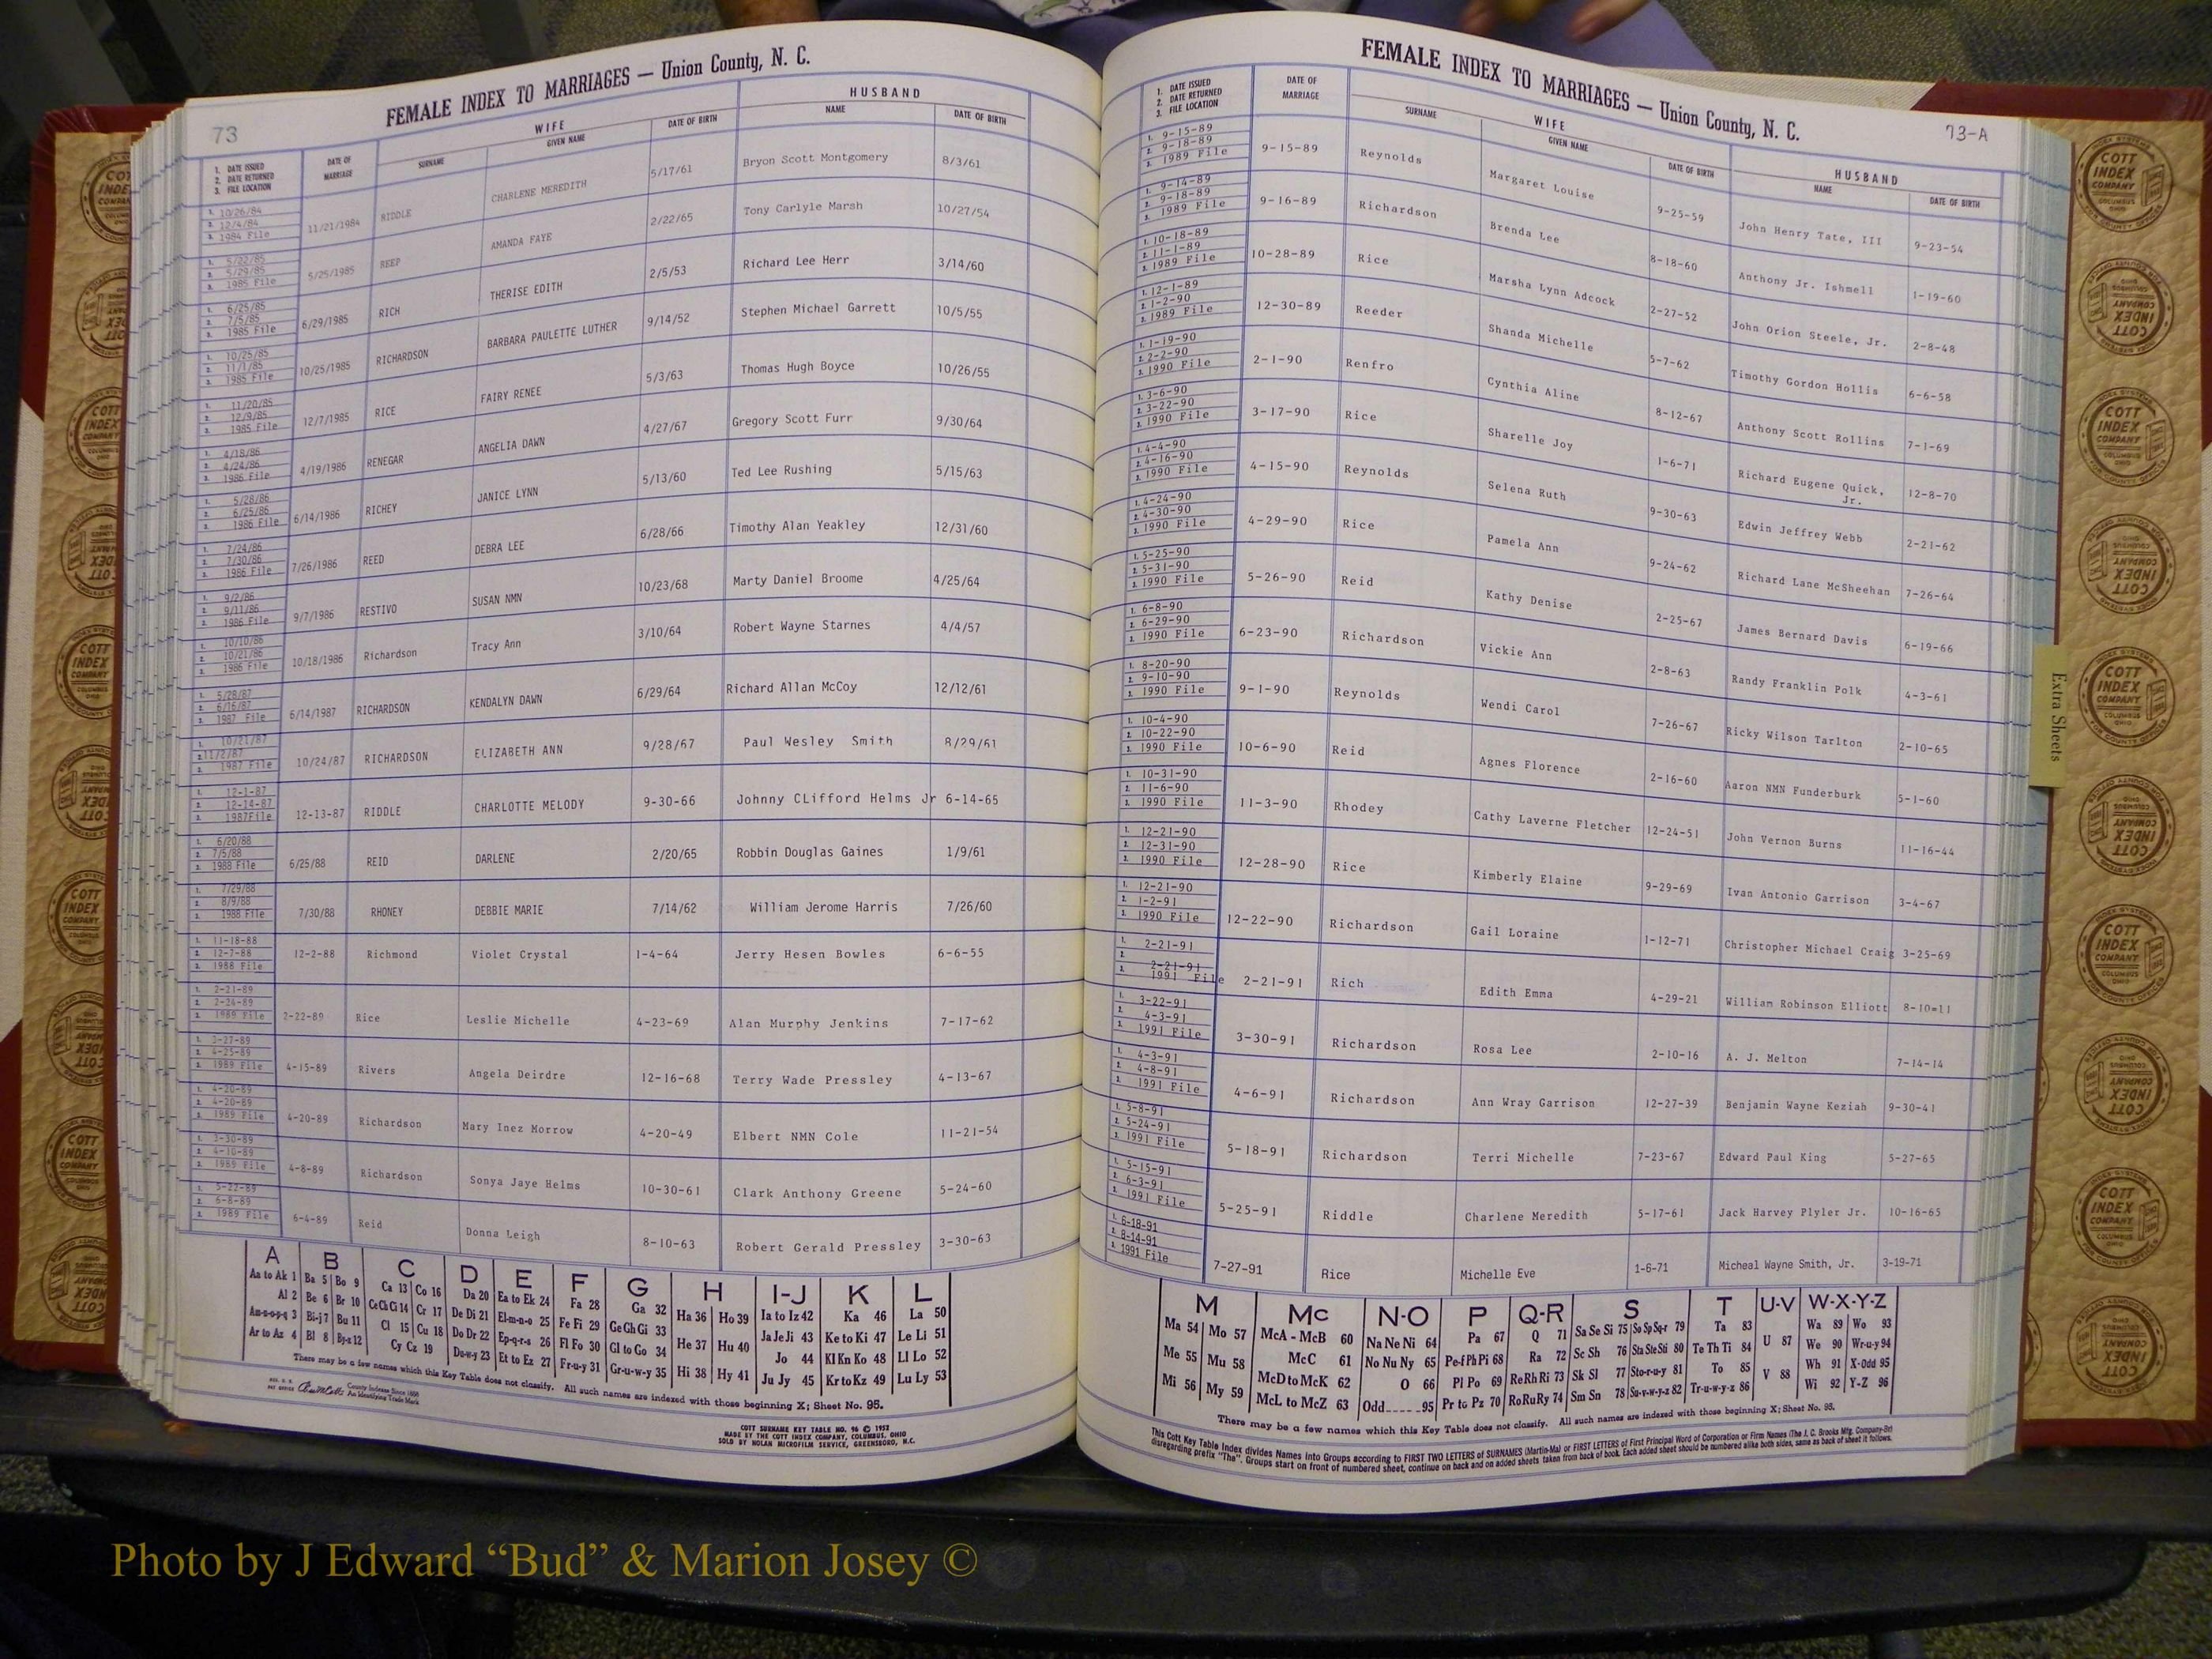 73
FEMALE INDEX TO MARRIAGES — Union County, N. C.
1. DATE ISSUED 2. DATE RETURNED 3. FILE LOCATION
DATE OF MARRIAGE
WIFE
SURNAME GIVEN NAME DATE OF BIRTH
HUSBAND
NAME DATE OF BIRTH
1. 10/26/84 2. 12/4/84 3. 1984 File 11/21/1984 RIDDLE CHARLENE MEREDITH 5/17/61 Bryon Scott Montgomery 8/3/61
1. 5/22/85 2. 5/29/85 3. 1985 File 5/25/1985 REEP AMANDA FAYE 2/22/65 Tony Carlyle Marsh 10/27/54
1. 6/25/85 2. 7/5/85 3. 1985 File 6/29/1985 RICH THERISE EDITH 2/5/53 Richard Lee Herr 3/14/60
1. 10/25/85 2. 11/1/85 3. 1985 File 10/25/1985 RICHARDSON BARBARA PAULETTE LUTHER 9/14/52 Stephen Michael Garrett 10/5/55
1. 11/20/85 2. 12/9/85 3. 1985 File 12/7/1985 RICE FAIRY RENEE 5/3/63 Thomas Hugh Boyce 10/26/55
1. 4/18/86 2. 4/24/86 3. 1986 File 4/19/1986 RENEGAR ANGELIA DAWN 4/27/67 Gregory Scott Furr 9/30/64
1. 5/28/86 2. 6/25/86 3. 1986 File 6/14/1986 RICHEY JANICE LYNN 5/13/60 Ted Lee Rushing 5/15/63
1. 7/24/86 2. 7/30/86 3. 1986 File 7/26/1986 REED DEBRA LEE 6/28/66 Timothy Alan Yeakley 12/31/60
1. 9/2/86 2. 9/11/86 3. 1986 File 9/7/1986 RESTIVO SUSAN NMN 10/23/68 Marty Daniel Broome 4/25/64
1. 10/10/86 2. 10/21/86 3. 1986 File 10/18/1986 Richardson Tracy Ann 3/10/64 Robert Wayne Starnes 4/4/57
1. 5/28/87 2. 6/16/87 3. 1987 File 6/14/1987 RICHARDSON KENDALYN DAWN 6/29/64 Richard Allan McCoy 12/12/61
1. 10/21/87 2. 11/2/87 3. 1987 File 10/24/87 RICHARDSON ELIZABETH ANN 9/28/67 Paul Wesley Smith 8/29/61
1. 12-1-87 2. 12-14-87 3. 1987File 12-13-87 RIDDLE CHARLOTTE MELODY 9-30-66 Johnny CLifford Helms Jr 6-14-65
1. 6/20/88 2. 7/5/88 3. 1988 File 6/25/88 REID DARLENE 2/20/65 Robbin Douglas Gaines 1/9/61
1. 7/29/88 2. 8/9/88 3. 1988 File 7/30/88 RHONEY DEBBIE MARIE 7/14/62 William Jerome Harris 7/26/60
1. 11-18-88 2. 12-7-88 3. 1988 File 12-2-88 Richmond Violet Crystal 1-4-64 Jerry Hesen Bowles 6-6-55
1. 2-21-89 2. 2-24-89 3. 1989 File 2-22-89 Rice Leslie Michelle 4-23-69 Alan Murphy Jenkins 7-17-62
1. 3-27-89 2. 4-25-89 3. 1989 File 4-15-89 Rivers Angela Deirdre 12-16-68 Terry Wade Pressley 4-13-67
1. 4-20-89 2. 4-20-89 3. 1989 File 4-20-89 Richardson Mary Inez Morrow 4-20-49 Elbert NMN Cole 11-21-54
1. 3-30-89 2. 4-10-89 3. 1989 File 4-8-89 Richardson Sonya Jaye Helms 10-30-61 Clark Anthony Greene 5-24-60
1. 5-22-89 2. 6-8-89 3. 1989 File 6-4-89 Reid Donna Leigh 8-10-63 Robert Gerald Pressley 3-30-63
A B C D E F G H I-J K L
Aa to Ak 1 Ba 5 Bo 9 Ca 13 Co 16 Da 20 Ea to Ek 24 Fa 28 Ga 32 Ha 36 Ho 39 Ia to Iz 42 Ka 46 La 50
Al 2 Be 6 Br 10 Ce Ch Ci 14 Cr 17 De Di 21 El-m-n-o 25 Fe Fi 29 Ge Gh Gi 33 He 37 Hu 40 Ja Je Ji 43 Ke to Ki 47 Le Li 51
Am-n-o-p-q 3 Bi-j 7 Bu 11 Cl 15 Cu 18 Do Dr 22 Ep-q-r-s 26 Fl Fo 30 Gl to Go 34 Hi 38 Hy 41 Jo 44 Kl Kn Ko 48 Ll Lo 52
Ar to Az 4 Bl 8 By-z 12 Cy Cz 19 Du-w-y 23 Et to Ez 27 Fr-u-y 31 Gr-u-w-y 35 Ju Jy 45 Kr to Kz 49 Lu Ly 53
There may be a few names which this Key Table does not classify. All such names are indexed with those beginning X; Sheet No. 95.
County Indexes Since 1888
An Identifying Trade Mark
COTT SURNAME KEY TABLE NO. 96 © 1952
MADE BY THE COTT INDEX COMPANY, COLUMBUS, OHIO
SOLD BY NOLAN MICROFILM SERVICE, GREENSBORO, N.C.
73-A
FEMALE INDEX TO MARRIAGES — Union County, N. C.
1. DATE ISSUED 2. DATE RETURNED 3. FILE LOCATION
DATE OF MARRIAGE
WIFE
SURNAME GIVEN NAME DATE OF BIRTH
HUSBAND
NAME DATE OF BIRTH
1. 9-15-89 2. 9-18-89 3. 1989 File 9-15-89 Reynolds Margaret Louise 9-25-59 John Henry Tate, III 9-23-54
1. 9-14-89 2. 9-18-89 3. 1989 File 9-16-89 Richardson Brenda Lee 8-18-60 Anthony Jr. Ishmell 1-19-60
1. 10-18-89 2. 11-1-89 3. 1989 File 10-28-89 Rice Marsha Lynn Adcock 2-27-52 John Orion Steele, Jr. 2-8-48
1. 12-1-89 2. 1-2-90 3. 1989 File 12-30-89 Reeder Shanda Michelle 5-7-62 Timothy Gordon Hollis 6-6-58
1. 1-19-90 2. 2-2-90 3. 1990 File 2-1-90 Renfro Cynthia Aline 8-12-67 Anthony Scott Rollins 7-1-69
1. 3-6-90 2. 3-22-90 3. 1990 File 3-17-90 Rice Sharelle Joy 1-6-71 Richard Eugene Quick, Jr. 12-8-70
1. 4-4-90 2. 4-16-90 3. 1990 File 4-15-90 Reynolds Selena Ruth 9-30-63 Edwin Jeffrey Webb 2-21-62
1. 4-24-90 2. 4-30-90 3. 1990 File 4-29-90 Rice Pamela Ann 9-24-62 Richard Lane McSheehan 7-26-64
1. 5-25-90 2. 5-31-90 3. 1990 File 5-26-90 Reid Kathy Denise 2-25-67 James Bernard Davis 6-19-66
1. 6-8-90 2. 6-29-90 3. 1990 File 6-23-90 Richardson Vickie Ann 2-8-63 Randy Franklin Polk 4-3-61
1. 8-20-90 2. 9-10-90 3. 1990 File 9-1-90 Reynolds Wendi Carol 7-26-67 Ricky Wilson Tarlton 2-10-65
1. 10-4-90 2. 10-22-90 3. 1990 File 10-6-90 Reid Agnes Florence 2-16-60 Aaron NMN Funderburk 5-1-60
1. 10-31-90 2. 11-6-90 3. 1990 File 11-3-90 Rhodey Cathy Laverne Fletcher 12-24-51 John Vernon Burns 11-16-44
1. 12-21-90 2. 12-31-90 3. 1990 File 12-28-90 Rice Kimberly Elaine 9-29-69 Ivan Antonio Garrison 3-4-67
1. 12-21-90 2. 1-2-91 3. 1990 File 12-22-90 Richardson Gail Loraine 1-12-71 Christopher Michael Craig 3-25-69
1. 2-21-91 2. 2-21-91 3. 1991 File 2-21-91 Rich Edith Emma 4-29-21 William Robinson Elliott 8-10=11
1. 3-22-91 2. 4-3-91 3. 1991 File 3-30-91 Richardson Rosa Lee 2-10-16 A. J. Melton 7-14-14
1. 4-3-91 2. 4-8-91 3. 1991 File 4-6-91 Richardson Ann Wray Garrison 12-27-39 Benjamin Wayne Keziah 9-30-41
1. 5-8-91 2. 5-24-91 3. 1991 File 5-18-91 Richardson Terri Michelle 7-23-67 Edward Paul King 5-27-65
1. 5-15-91 2. 6-3-91 3. 1991 File 5-25-91 Riddle Charlene Meredith 5-17-61 Jack Harvey Plyler Jr. 10-16-65
1. 6-18-91 2. 8-14-91 3. 1991 File 7-27-91 Rice Michelle Eve 1-6-71 Micheal Wayne Smith, Jr. 3-19-71
M Mc N-O P Q-R S T U-V W-X-Y-Z
Ma 54 Mo 57 McA - McB 60 Na Ne Ni 64 Pa 67 Q 71 Sa Se Si 75 So Sp Sq-r 79 Ta 83 U 87 Wa 89 Wo 93
Me 55 Mu 58 McC 61 No Nu Ny 65 Pe-f Ph Pi 68 Ra 72 Sc Sh 76 Sta Ste Sti 80 Te Th Ti 84 V 88 We 90 Wr-u-y 94
Mi 56 My 59 McD to McK 62 O 66 Pl Po 69 Re Rh Ri 73 Sk Sl 77 Sto-r-u-y 81 To 85 Wh 91 X-Odd 95
McL to McZ 63 Odd 95 Pr to Pz 70 Ro Ru Ry 74 Sm Sn 78 Su-v-w-y-z 82 Tr-u-w-y-z 86 Wi 92 Y-Z 96
There may be a few names which this Key Table does not classify. All such names are indexed with those beginning X; Sheet No. 95.
This Cott Key Table Index divides Names into Groups according to FIRST TWO LETTERS of SURNAMES (Martin-Ma) or FIRST LETTERS of First Principal Word of Corporation or Firm Names (The J. C. Brooks Mfg. Company-Br)
disregarding prefix "The". Groups start on front of numbered sheet, continue on back and on added sheets taken from back of book. Each added sheet should be numbered alike both sides, same as back of sheet it follows.
Extra Sheets
COTT INDEX COMPANY COLUMBUS OHIO
Photo by J Edward “Bud” & Marion Josey ©